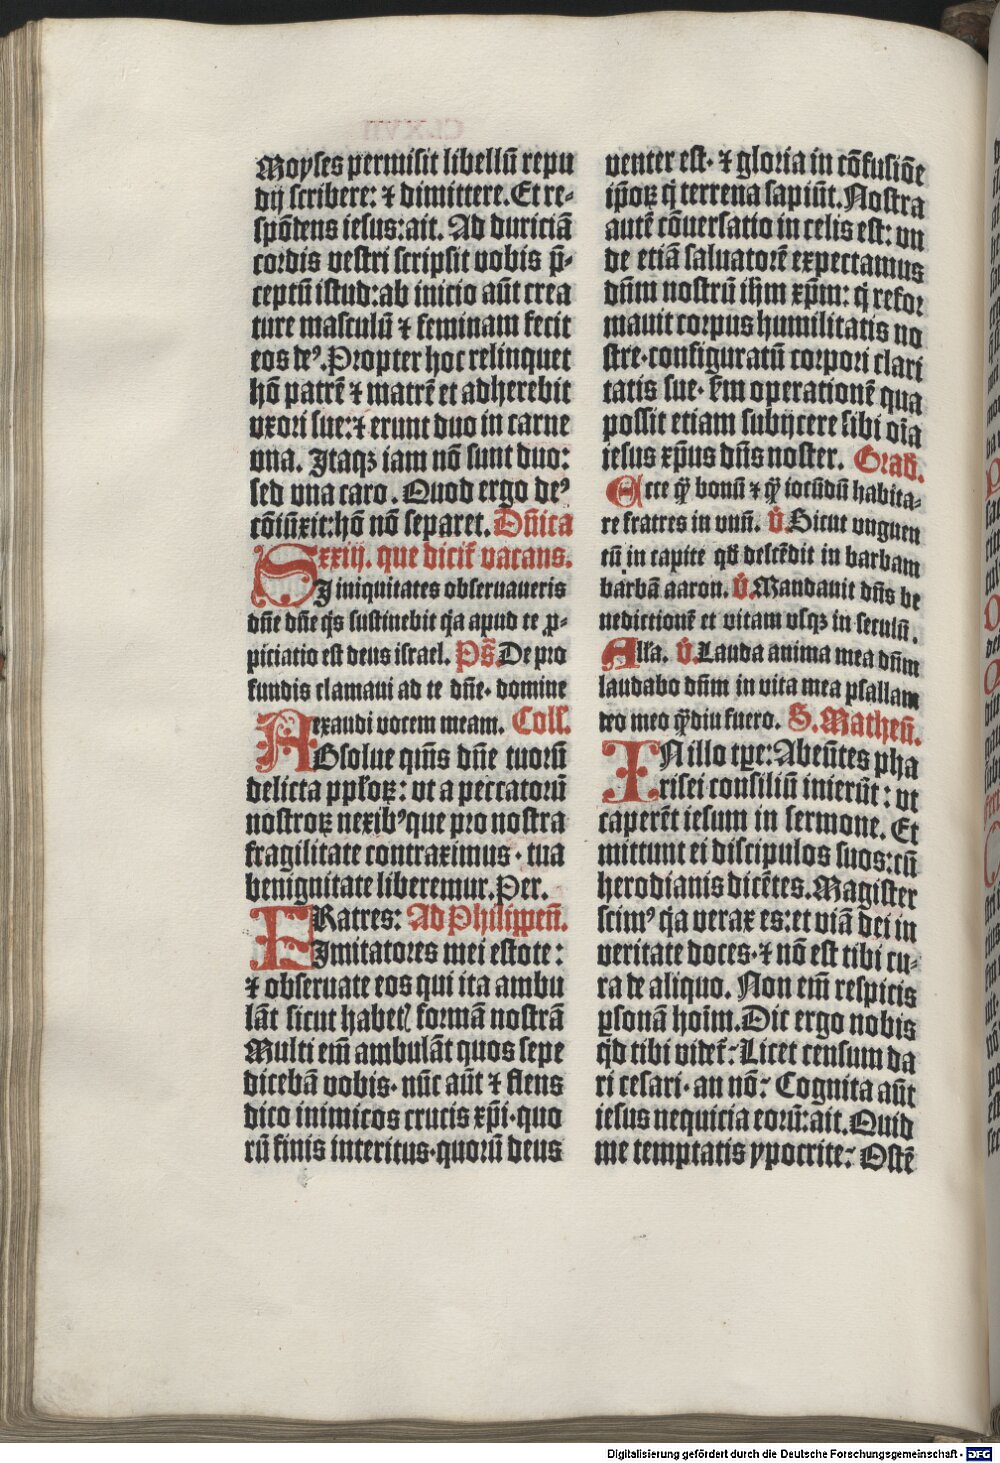 Moyses permisit libellū repu
dij scribere: ⁊ dimittere. Et re-
spōdens iesus: ait. Ad duriciā
cordis vestri scripsit vobis p̄-
ceptū istud: ab inicio aūt crea
ture masculū ⁊ feminam fecit
eos deꝰ. Propter hoc relinquet
hō patrē ⁊ matrē et adherebit
vxori sue: ⁊ erunt duo in carne
vna. Itaqꝫ iam nō sunt duo:
sed vna caro. Quod ergo deꝰ
cōiūxit: hō nō separet. Dn̄ica
xxiij. que dicit̄ vacans.
SI iniquitates obseruaueris
dn̄e dn̄e q̄s sustinebit q̄a apud te ꝓ-
piciatio est deus israel. Ps̄. De pro
fundis clamaui ad te dn̄e. domine
exaudi vocem meam. Coll̄.
ABsolue qm̄s dn̄e tuorū
delicta pp̄loꝝ: vt a peccatorū
nostroꝝ nexibꝰ que pro nostra
fragilitate contraximus. tua
benignitate liberemur. Per.
FRatres: Ad Philippen̄.
Imitatores mei estote:
⁊ obseruate eos qui ita ambu
lāt sicut habetꝭ formā nostrā
Multi em̄ ambulāt quos sepe
dicebā vobis. nūc aūt ⁊ flens
dico inimicos crucis xp̄i. quo
rū finis interitus. quorū deus
venter est. ⁊ gloria in cōfusiōe
ip̄oꝝ q̄ terrena sapiūt. Nostra
autē cōuersatio in celis est: vn
de etiā saluatorē expectamus
dn̄m nostrū ih̄m xp̄m: q̄ refor
mauit corpus humilitatis no
stre. configuratū corpori clari
tatis sue. s̄m operationē qua
possit etiam subijcere sibi oīa
iesus xp̄us dn̄s noster. Grad̄.
Ecce q̄ bonū ⁊ q̄ iocūdū habita-
re fratres in vnū. V̄. Sicut vnguen
tū in capite qd̄ descēdit in barbam
barbā aaron. V̄. Mandauit dn̄s be
nedictionē et vitam vsqꝫ in seculū.
All̄a. V̄. Lauda anima mea dn̄m
laudabo dn̄m in vita mea psallam
deo meo q̄diu fuero. S. Matheū.
IN illo tꝑe: Abeūtes pha
risei consiliū inierūt: vt
caperēt iesum in sermone. Et
mittunt ei discipulos suos: cū
herodianis dicētes. Magister
scimꝰ q̄a verax es: et viā dei in
veritate doces. ⁊ nō est tibi cu-
ra de aliquo. Non em̄ respicis
ꝑsonā hoīm. Dic ergo nobis
qd̄ tibi videt̄: Licet censum da
ri cesari. an nō: Cognita aūt
iesus nequicia eorū: ait. Quid
me temptatis ypocrite: Ostē
Digitalisierung gefördert durch die Deutsche Forschungsgemeinschaft - DFG